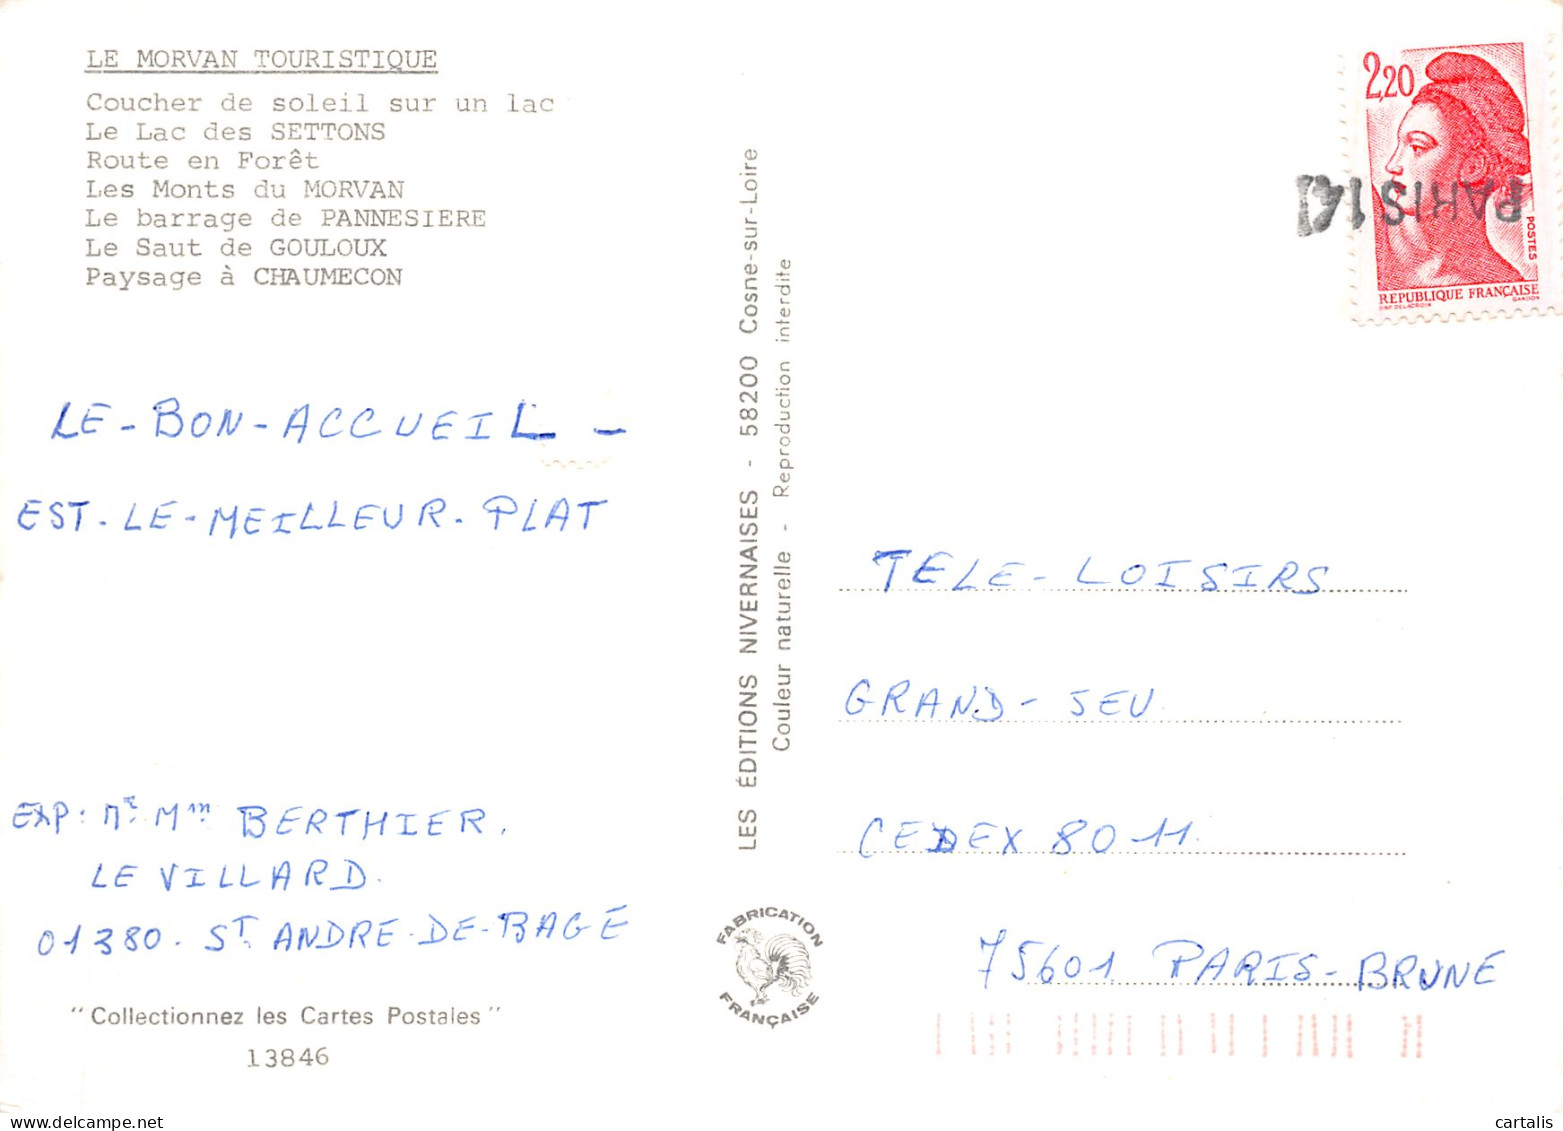 LE MORVAN TOURISTIQUE
Coucher de soleil sur un lac
Le Lac des SETTONS
Route en Forêt
Les Monts du MORVAN
Le barrage de PANNESIERE
Le Saut de GOULOUX
Paysage à CHAUMECON
LE - BON - ACCUEIL -
EST - LE - MEILLEUR - PLAT
EXP: Mr Mme BERTHIER.
LE VILLARD.
01380 - ST ANDRE-DE-BAGE
"Collectionnez les Cartes Postales"
13846
LES ÉDITIONS NIVERNAISES - 58200 Cosne-sur-Loire
Couleur naturelle - Reproduction interdite
FABRICATION
FRANÇAISE
2,20
POSTES
REPUBLIQUE FRANÇAISE
GANDON
PARIS 14
TELE - LOISIRS
GRAND - JEU
CEDEX 80 11
75601 PARIS - BRUNE
cartalis